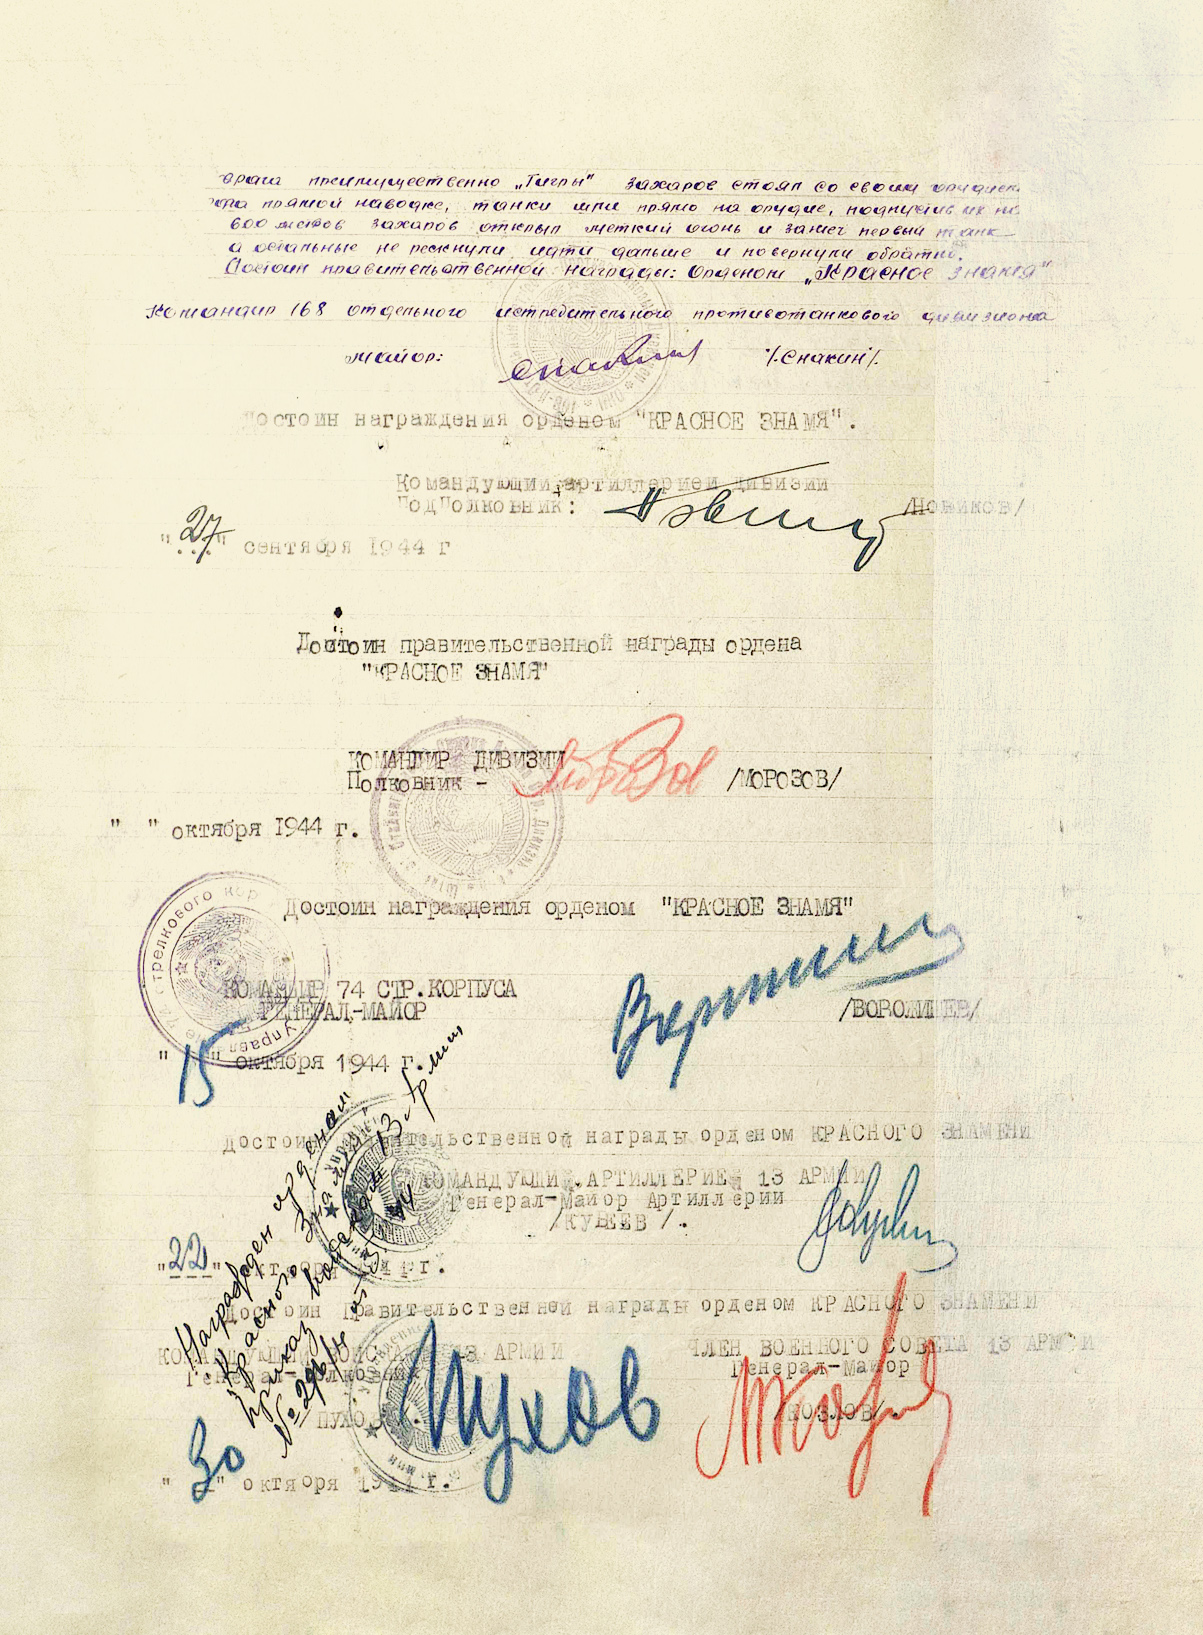 врага преимущественно „Тигры" Захаров стоял со своим орудием
на прямой наводке, танки шли прямо на орудие, подпустив их на
600 метров Захаров открыл меткий огонь и зажег первый танк
а остальные не рескнули идти дальше и повернули обратно.
Достоин правительственной награды: Орденом „Красное знамя"
Командир 168 отдельного истребительного противотанкового дивизиона
майор: /Снакин/.
Достоин награждения орденом "КРАСНОЕ ЗНАМЯ".
Командующий артиллерией дивизии
Подполковник: /Новиков/
"27" сентября 1944 г
Достоин правительственной награды ордена
"КРАСНОЕ ЗНАМЯ"
КОМАНДИР ДИВИЗИИ
Полковник - Морозов /МОРОЗОВ/
" " октября 1944 г.
Достоин награждения орденом "КРАСНОЕ ЗНАМЯ"
трелкового кор
Управл
КОМАНДИР 74 СТР.КОРПУСА
ГЕНЕРАЛ-МАЙОР /ВОРОЖИЩЕВ/
"15" октября 1944 г.
Достоин правительственной награды орденом КРАСНОГО ЗНАМЕНИ
КОМАНДУЮЩИЙ АРТИЛЛЕРИЕЙ 13 АРМИИ
Генерал-Майор Артиллерии
/КУБЕЕВ/.
"22" октября 1944 г.
Награжден орденом
Красного Знамени
Приказ войскам 13 Армии
Достоин Правительственной награды орденом КРАСНОГО ЗНАМЕНИ
КОМАНДУЮЩИЙ ВОЙСКАМИ 13 АРМИИ ЧЛЕН ВОЕННОГО СОВЕТА 13 АРМИИ
Генерал-Полковник Генерал-Майор
ПУХОВ Пухов /КОЗЛОВ/.
"30" октября 1944 г.